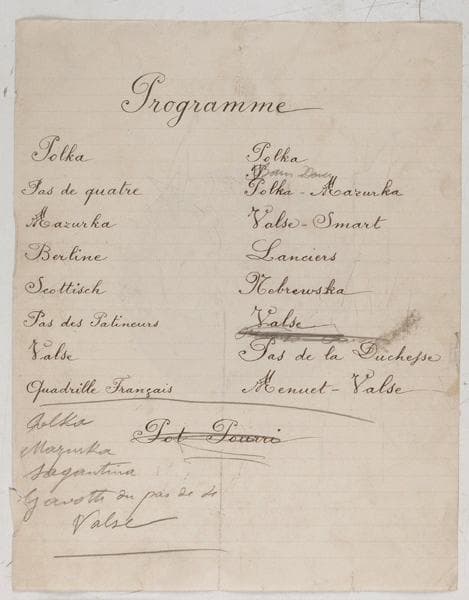 Programme
Polka
Pas de quatre
Mazurka
Berline
Scottisch
Pas des Patineurs
Valse
Quadrille Français
Polka
Polka - Mazurka
Valse - Smart
Lanciers
Nebrewska
Valse
Pas de la Duchesse
Menuet - Valse
Pot Pourri
Polka
Mazurka
Sagantina
Gavotte du pas de 4
Valse